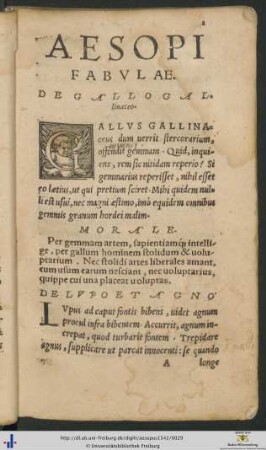 AESOPI
FABVLAE.
DE GALLO GAL-
linaceo.
GALLVS GALLINA-
ceus dum uerrit stercorarium,
offendit gemmam. Quid, inqui-
ens, rem sic nitidam reperio? Si
gemmarius reperisset, nihil esset
eo lætius, ut qui pretium sciret. Mihi quidem nul-
li est usui, nec magni æstimo, imò equidem omnibus
gemmis granum hordei malim.
MORALE.
Per gemmam artem, sapientiamq; intelli-
ge, per gallum hominem stolidum & uolu-
ptarium. Nec stolidi artes liberales amant,
cum usum earum nesciant, nec uoluptarius,
quippe cui una placeat uoluptas.
DE LVPO ET AGNO
LVpus ad caput fontis bibens, uidet agnum
procul infra bibentem. Accurrit, agnum in-
crepat, quod turbarit fontem. Trepidare
agnus, supplicare ut parcat innocenti: se quando
A longe
http://dl.ub.uni-freiburg.de/diglit/aesopus1542/0029
© Universitätsbibliothek Freiburg